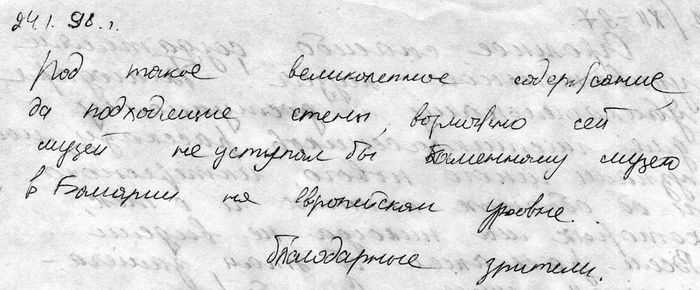 24.1.98 г.
Под такое великолепное содержание
да подходящие стены, возможно сей
музей не уступал бы Каменному музею
в Баварии на Европейском уровне.
Благодарные зрители.